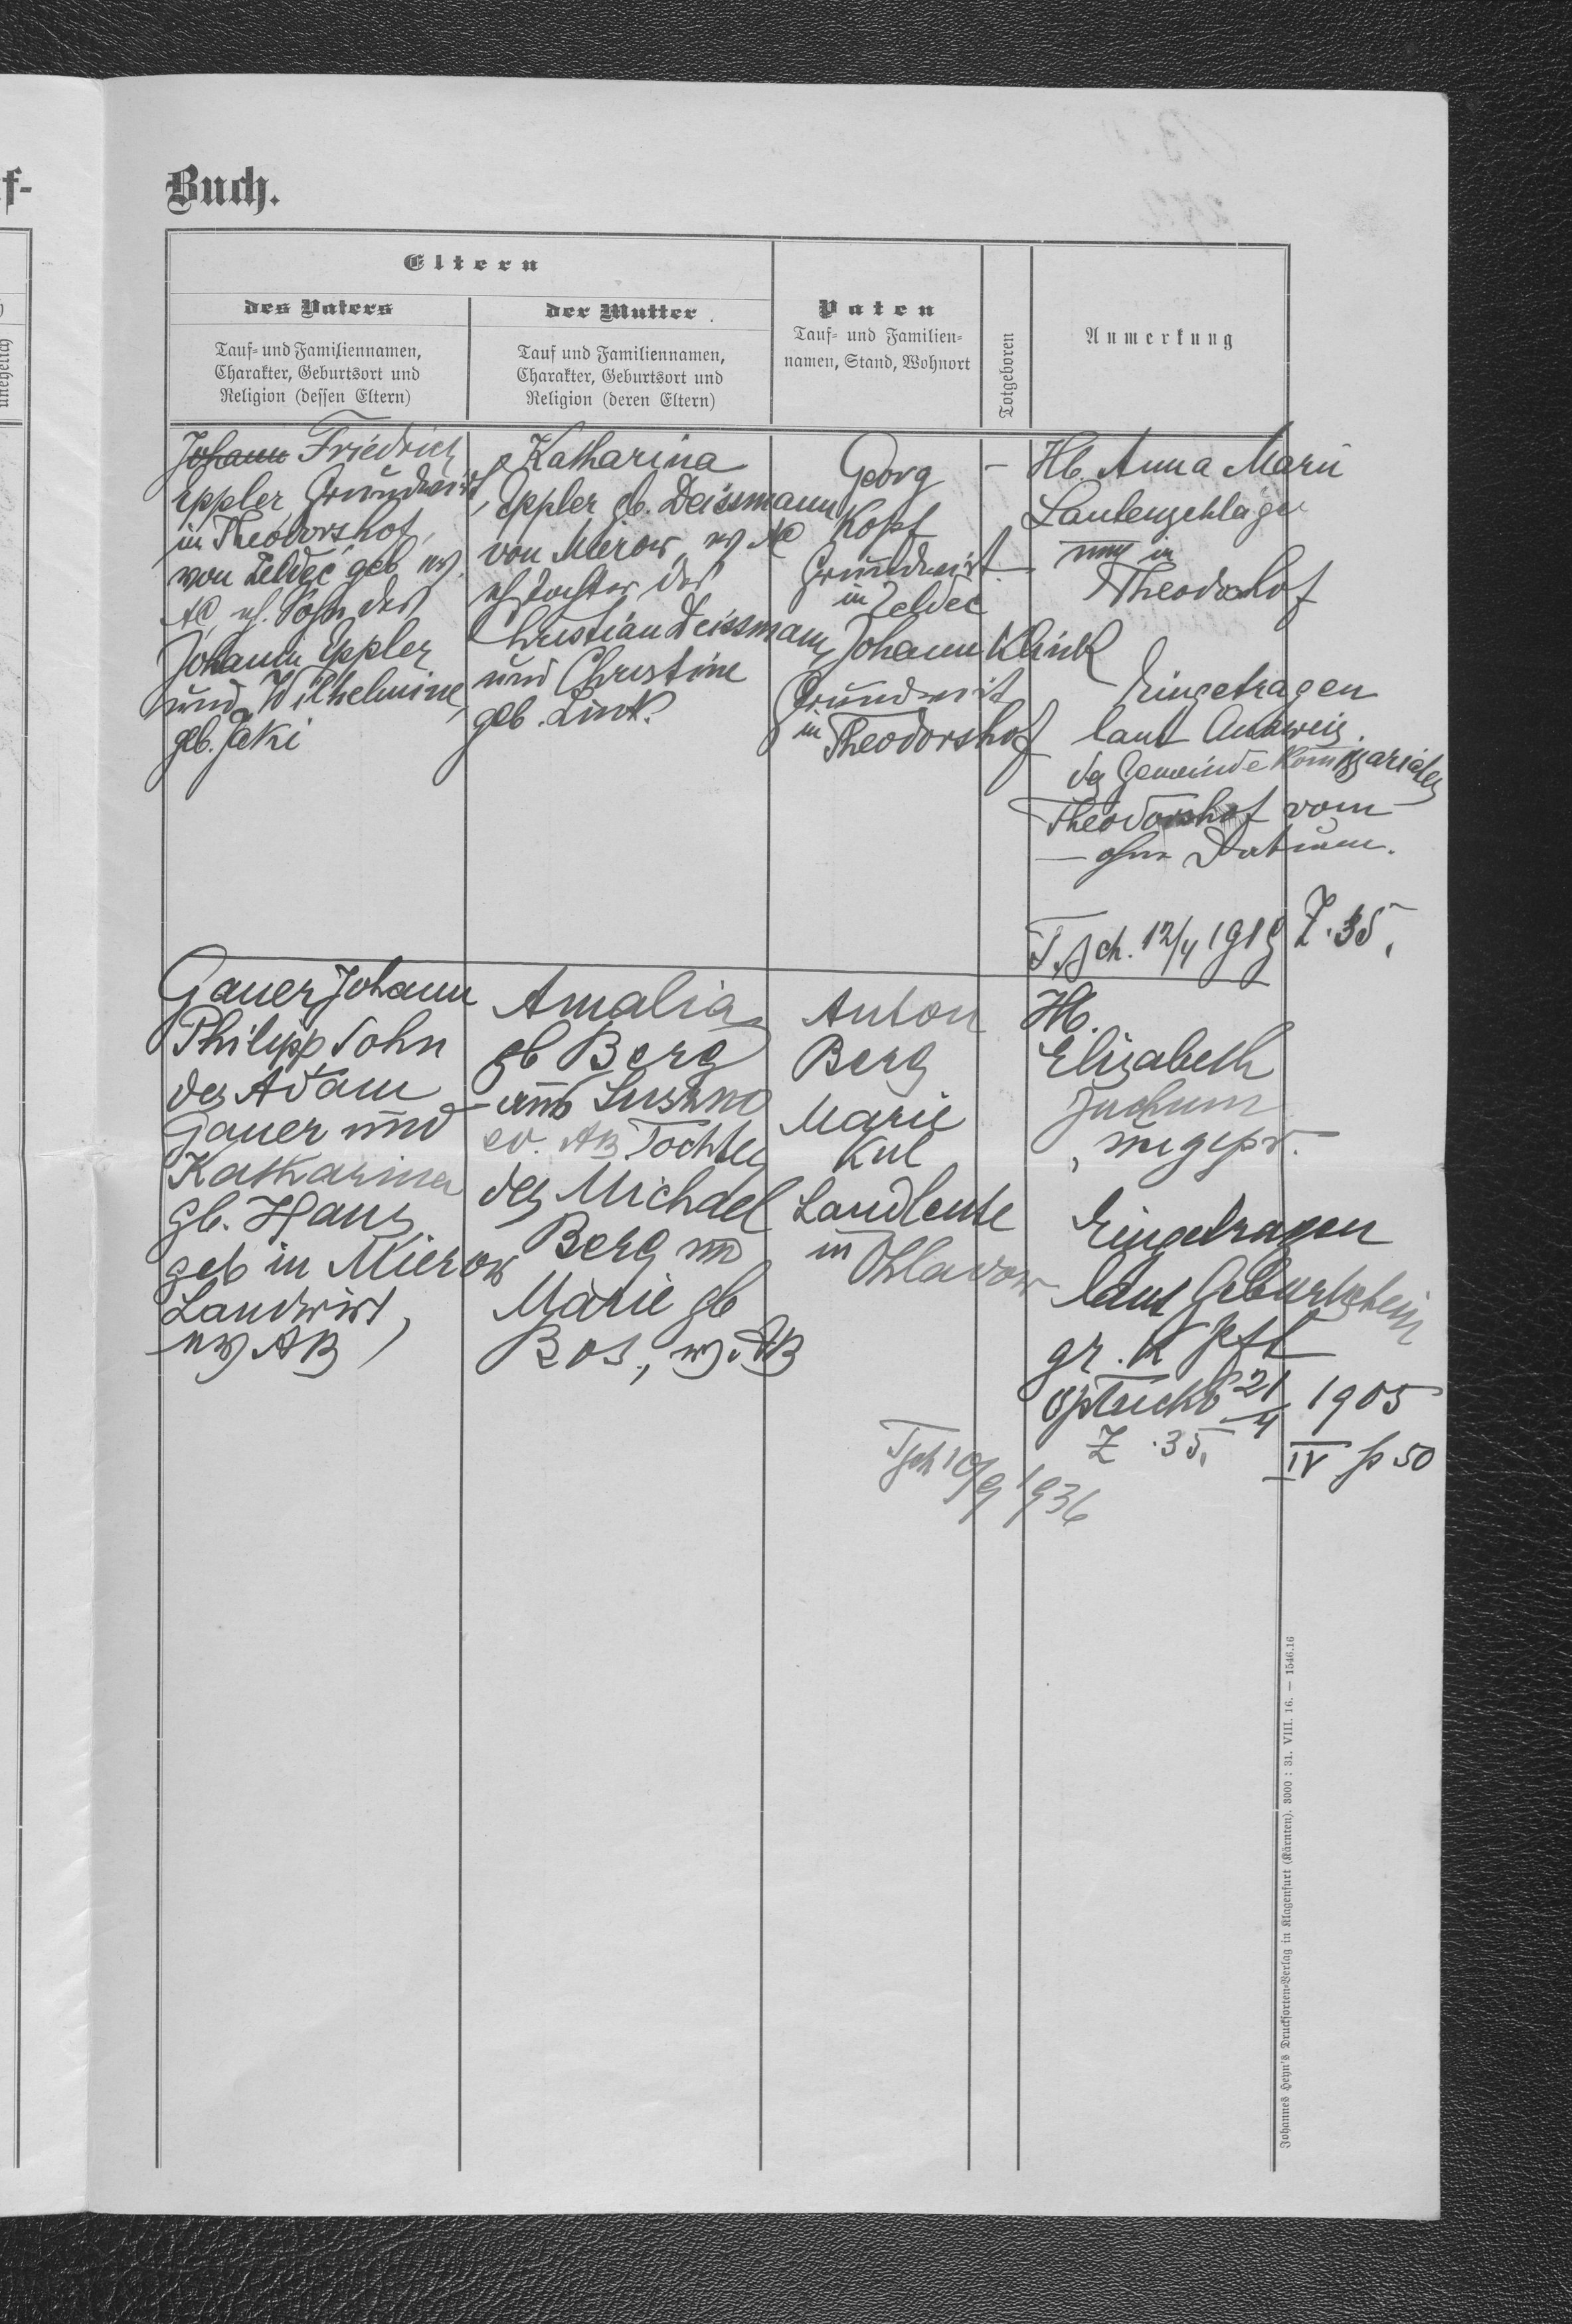 f-
unehelich
Buch.
Eltern
des Vaters
der Mutter
Paten
Totgeboren
Anmerkung
Tauf- und Familiennamen,
Charakter, Geburtsort und
Religion (dessen Eltern)
Tauf und Familiennamen,
Charakter, Geburtsort und
Religion (deren Eltern)
Tauf- und Familien-
namen, Stand, Wohnort
Johann Friedrich
Eppler, Grundwirt
in Theodorshof,
von Zeldec geb ev.
AC, eh. Sohn des
Johann Eppler
und Wilhelmine
geb. Jaki
Katharina
Eppler gb. Deissmann
von Mierow, ev AC
eh Tochter des
Christian Deissmann
und Christine
geb. Link.
Georg
Kopf
Grundwirt
in Zeldec
Johann Klink
Grundwirt
in Theodorshof
-
Hb. Anna Marie
Lautenschläger
in
Theodorshof
Eingetragen
laut Ausweis
des Gemeinde
Theodorshof vom
— ohne Datum.
T. sch. 12/4 1919 Z. 35.
Gauer Johann
Philipp Sohn
des Adam
Gauer und
Katharina
gb. Haus
geb in Mierow
Landwirt,
ev AB
Amalia
gb Berg
aus
ev. AB Tochter
des Michael
Berg und
Marie gb
Ros., ev. AB
Anton
Berg
Marie
Kul
Landleute
in Ohladow
Hb.
Elisabeth
Juchum
, ungepr.
Eingetragen
laut Geburtschein
gr. K
21/4 1905
Z. 35. IV p 50
Tsch 10/9 1936
Johannes Heyn's Drucksorten-Verlag in Klagenfurt (Kärnten). 3000 : 31. VIII. 16. — 1546.16